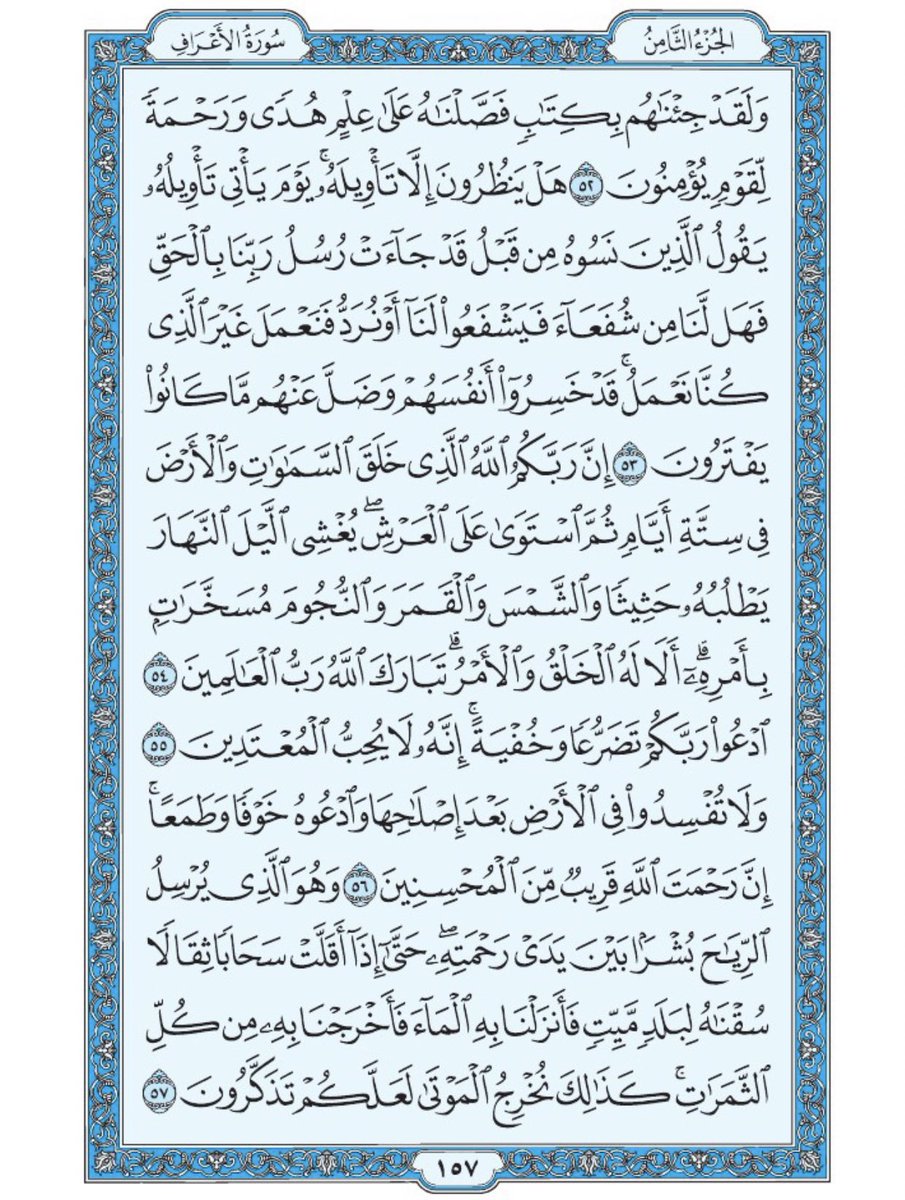 الجُزْءُ الثَّامِنُ
سُورَةُ الأَعْرَافِ
وَلَقَدْ جِئْنَٰهُم بِكِتَٰبٖ فَصَّلْنَٰهُ عَلَىٰ عِلْمٍ هُدٗى وَرَحْمَةٗ
لِّقَوْمٖ يُؤْمِنُونَ ٥٢ هَلْ يَنظُرُونَ إِلَّا تَأْوِيلَهُۥۚ يَوْمَ يَأْتِي تَأْوِيلُهُۥ
يَقُولُ ٱلَّذِينَ نَسُوهُ مِن قَبْلُ قَدْ جَآءَتْ رُسُلُ رَبِّنَا بِٱلْحَقِّ
فَهَل لَّنَا مِن شُفَعَآءَ فَيَشْفَعُوا۟ لَنَآ أَوْ نُرَدُّ فَنَعْمَلَ غَيْرَ ٱلَّذِي
كُنَّا نَعْمَلُۚ قَدْ خَسِرُوٓا۟ أَنفُسَهُمْ وَضَلَّ عَنْهُم مَّا كَانُوا۟
يَفْتَرُونَ ٥٣ إِنَّ رَبَّكُمُ ٱللَّهُ ٱلَّذِي خَلَقَ ٱلسَّمَٰوَٰتِ وَٱلْأَرْضَ
فِي سِتَّةِ أَيَّامٖ ثُمَّ ٱسْتَوَىٰ عَلَى ٱلْعَرْشِۖ يُغْشِي ٱلَّيْلَ ٱلنَّهَارَ
يَطْلُبُهُۥ حَثِيثٗا وَٱلشَّمْسَ وَٱلْقَمَرَ وَٱلنُّجُومَ مُسَخَّرَٰتِۭ
بِأَمْرِهِۦٓۗ أَلَا لَهُ ٱلْخَلْقُ وَٱلْأَمْرُۗ تَبَارَكَ ٱللَّهُ رَبُّ ٱلْعَٰلَمِينَ ٥٤
ٱدْعُوا۟ رَبَّكُمْ تَضَرُّعٗا وَخُفْيَةًۚ إِنَّهُۥ لَا يُحِبُّ ٱلْمُعْتَدِينَ ٥٥
وَلَا تُفْسِدُوا۟ فِي ٱلْأَرْضِ بَعْدَ إِصْلَٰحِهَا وَٱدْعُوهُ خَوْفٗا وَطَمَعًاۚ
إِنَّ رَحْمَتَ ٱللَّهِ قَرِيبٞ مِّنَ ٱلْمُحْسِنِينَ ٥٦ وَهُوَ ٱلَّذِي يُرْسِلُ
ٱلرِّيَٰحَ بُشْرَۢا بَيْنَ يَدَيْ رَحْمَتِهِۦۖ حَتَّىٰٓ إِذَآ أَقَلَّتْ سَحَابٗا ثِقَالٗا
سُقْنَٰهُ لِبَلَدٖ مَّيِّتٖ فَأَنزَلْنَا بِهِ ٱلْمَآءَ فَأَخْرَجْنَا بِهِۦ مِن كُلِّ
ٱلثَّمَرَٰتِۚ كَذَٰلِكَ نُخْرِجُ ٱلْمَوْتَىٰ لَعَلَّكُمْ تَذَكَّرُونَ ٥٧
١٥٧